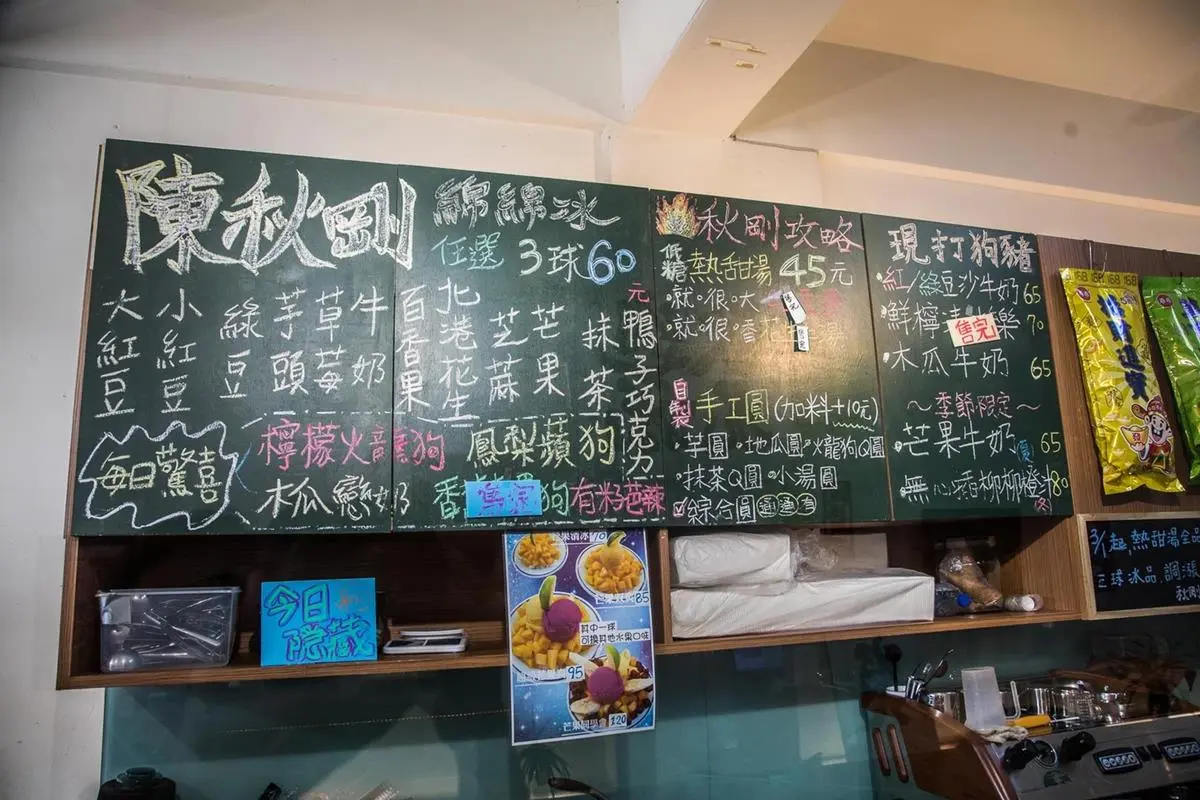 陳秋剛
綿綿冰
任選 3球60元
大紅豆
小紅豆
綠豆
芋頭
草莓
牛奶
百香果
北港花生
芝麻
芒果
抹茶
鴨子巧克力
每日驚喜
檸檬火龍狗
木瓜戀奶
鳳梨蘋狗
香
狗
有籽芭辣
秋剛攻略
低糖 熱甜湯 45元
·就·很·大
·就·很·香
售完
自製 手工圓(加料+10元)
·芋圓·地瓜圓·火龍狗Q圓
·抹茶Q圓·小湯圓
綜合圓
現打狗豬
·紅/綠豆沙牛奶 65
·鮮檸 樂 70
售完
·木瓜牛奶 65
~季節限定~
·芒果牛奶 65
·無心香柳柳橙汁 80
今日隱藏
芒果清冰 70
85
其中一球
可換其他水果口味
95
120
168 168 168
3/1起,熱甜湯
三球冰品,調漲